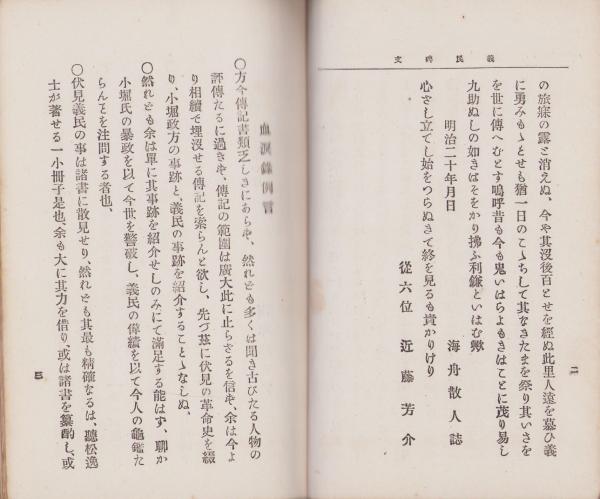 義民碑文
の旅寐の露と消えぬ、今や其沒後百とせを經ぬ此里人遠を慕ひ義
に勇みもゝとせも猶一日のこゝちして其なきたまを祭り其いさを
を世に傳へむとす嗚呼昔も今も鬼いはらよもきはことに茂り易し
九助ぬしの如きはそをかり拂ふ利鎌といはむ歟
明治二十年月日
海舟散人誌
心さし立てし始をつらぬきて終を見るも貴かりけり
從六位 近藤芳介
二
血淚錄例言
〇方今傳記書類乏しきにあらす、然れとも多くは聞き古びたる人物の
評傳たるに過きす、傳記の範圍は廣大此に止らさるを信す、余は今よ
り相續て埋沒せる傳記を索らんと欲し、先づ茲に伏見の革命史を綴
り、小堀政方の事跡と、義民の事跡を紹介することゝなしぬ、
〇然れとも余は單に其事跡を紹介せしのみにて滿足する能はす、聊か
小堀氏の暴政を以て今世を警破し、義民の偉績を以て今人の龜鑑た
らんことを注問する者也、
〇伏見義民の事は諸書に散見せり、然れとも其最も精確なるは、聽松逸
士が著せる一小冊子是也、余も大に其力を借り、或は諸書を纂酌し、或
三